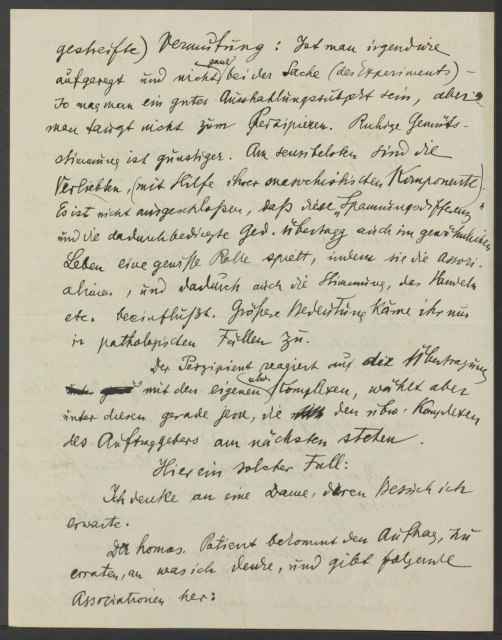 gestreifte) Vermutung: Ist man irgendwie
aufgeregt und nicht ganz bei der Sache (des Experiments) –
so mag man ein gutes Ausstrahlungsobjekt sein, aber
man taugt nicht zum Perzipieren. Ruhige Gemüts-
stimmung ist günstiger. Am sensibelsten sind die
Verliebten, (mit Hilfe ihrer masochistischen Komponente).
Es ist nicht ausgeschloßen, daß diese „Spannungsdifferenz"
und die dadurch bedingte Ged. Übertragg auch im gewöhnlichen
Leben eine gewisse Rolle spielt, indem sie die Associ-
ationen, und dadurch auch die Stimmung, das Handeln
etc. beeinflußt. Größere Bedeutung käme ihr nur
in pathologischen Fällen zu.
Der Perzipient reagiert auf die Übertragung
mit den eigenen ubw. Komplexen, wählt aber
unter diesen gerade jene, die den ubw. Komplexen
des Auftraggebers am nächsten stehen.
Hier ein solcher Fall:
Ich denke an eine Dame, deren Besuch ich
erwarte.
Der homos. Patient bekommt den Auftrag, zu
erraten, an was ich denke, und gibt folgende
Associationen her: